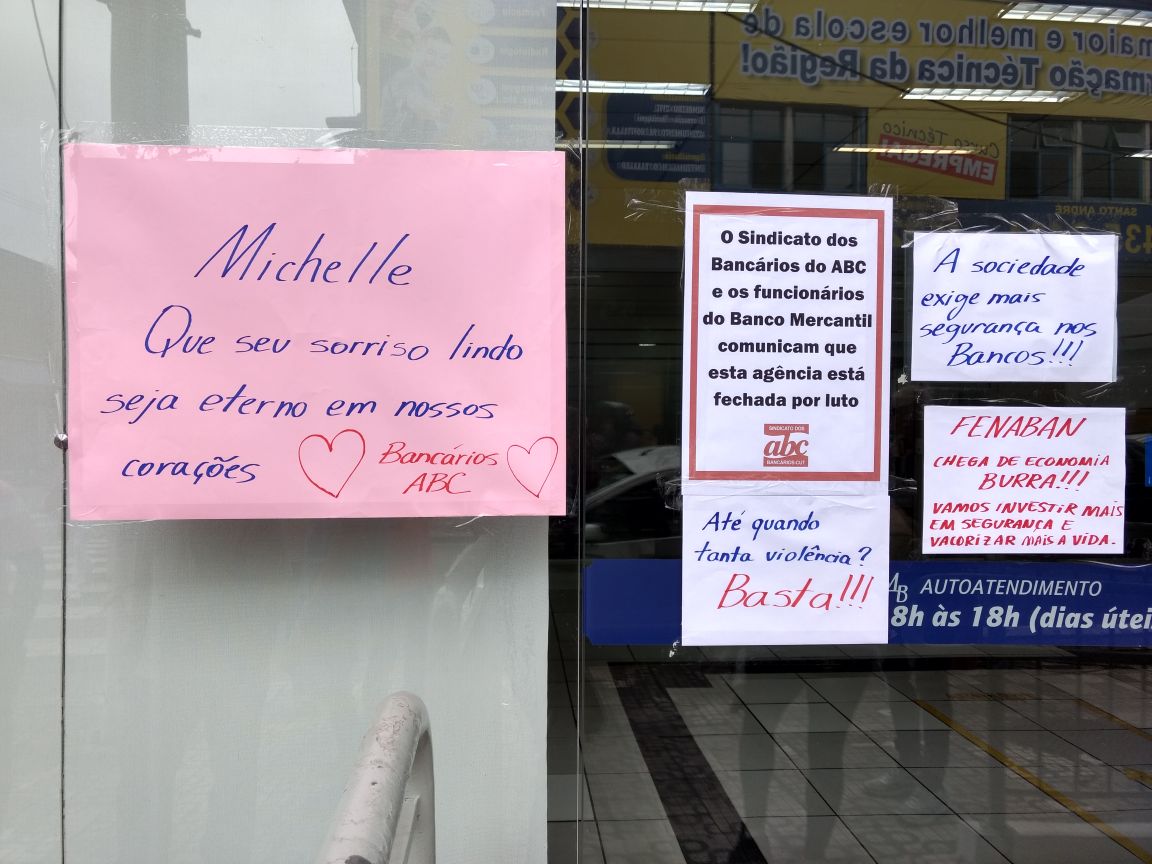 Michelle
Que seu sorriso lindo
seja eterno em nossos
corações
Bancários
ABC
O Sindicato dos
Bancários do ABC
e os funcionários
do Banco Mercantil
comunicam que
esta agência está
fechada por luto
SINDICATO DOS
abc
BANCÁRIOS-CUT
Até quando
tanta violência?
Basta!!!
A sociedade
exige mais
segurança nos
Bancos!!!
FENABAN
CHEGA DE ECONOMIA
BURRA!!!
VAMOS INVESTIR MAIS
EM SEGURANÇA E
VALORIZAR MAIS A VIDA.
AUTOATENDIMENTO
8h às 18h (dias útei
maior e melhor escola de
rmação Técnica da Região!
Curso Técnico
EMPREGA!
SANTO ANDRÉ